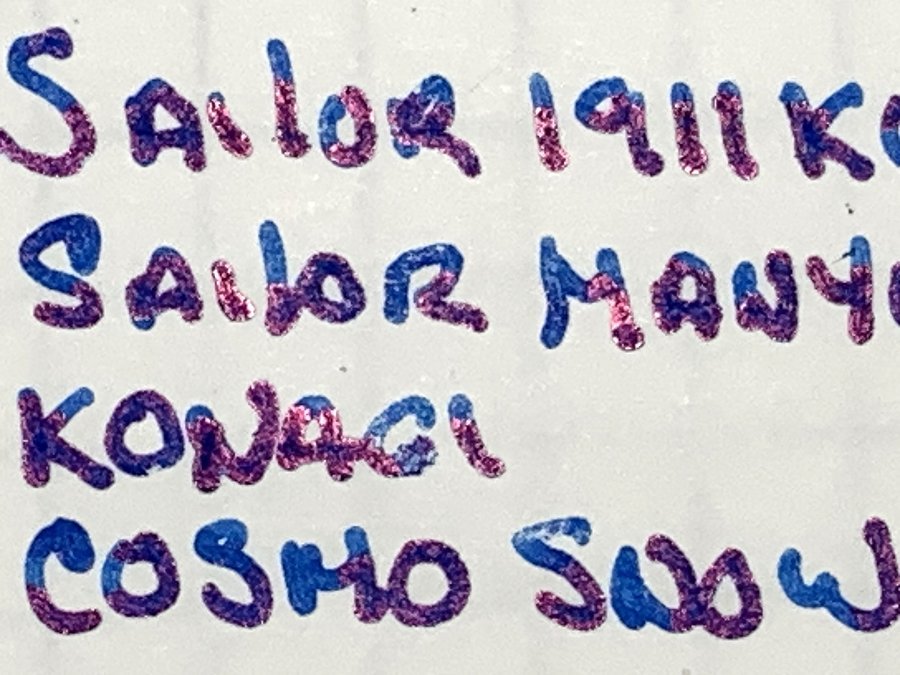 SAILOR 1911
SAILOR MANYO
KONAGI
COSMO SNOW